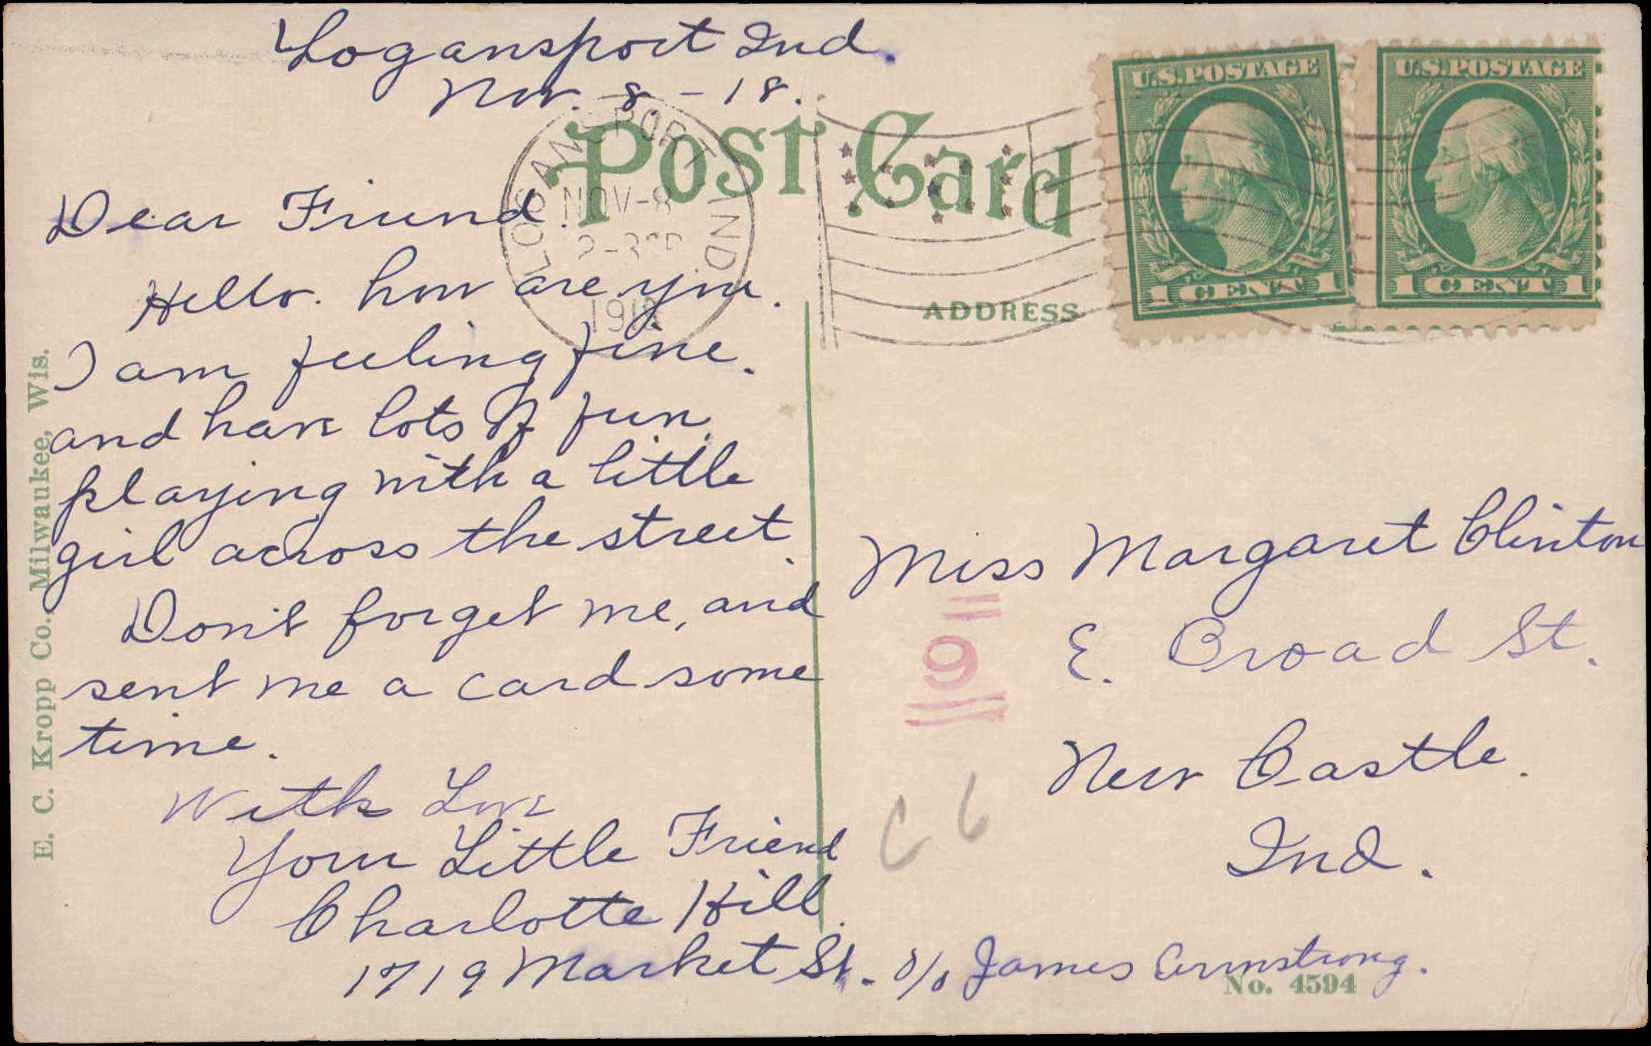 Logansport Ind.
Nov. 8 - 18.
POST CARD
LOGANSPORT IND
NOV-8
1918
U.S. POSTAGE
1 CENT 1
U.S. POSTAGE
1 CENT 1
ADDRESS
Dear Friend
Hello. how are you.
I am feeling fine.
and have lots of fun,
playing with a little
girl across the street.
Don't forget me, and
sent me a card some
time.
With Love
Your Little Friend
Charlotte Hill.
1719 Market St. c/o James Armstrong.
Miss Margaret Clinton
E. Broad St.
New Castle.
Ind.
9
C 6
E. C. Kropp Co., Milwaukee, Wis.
No. 4594